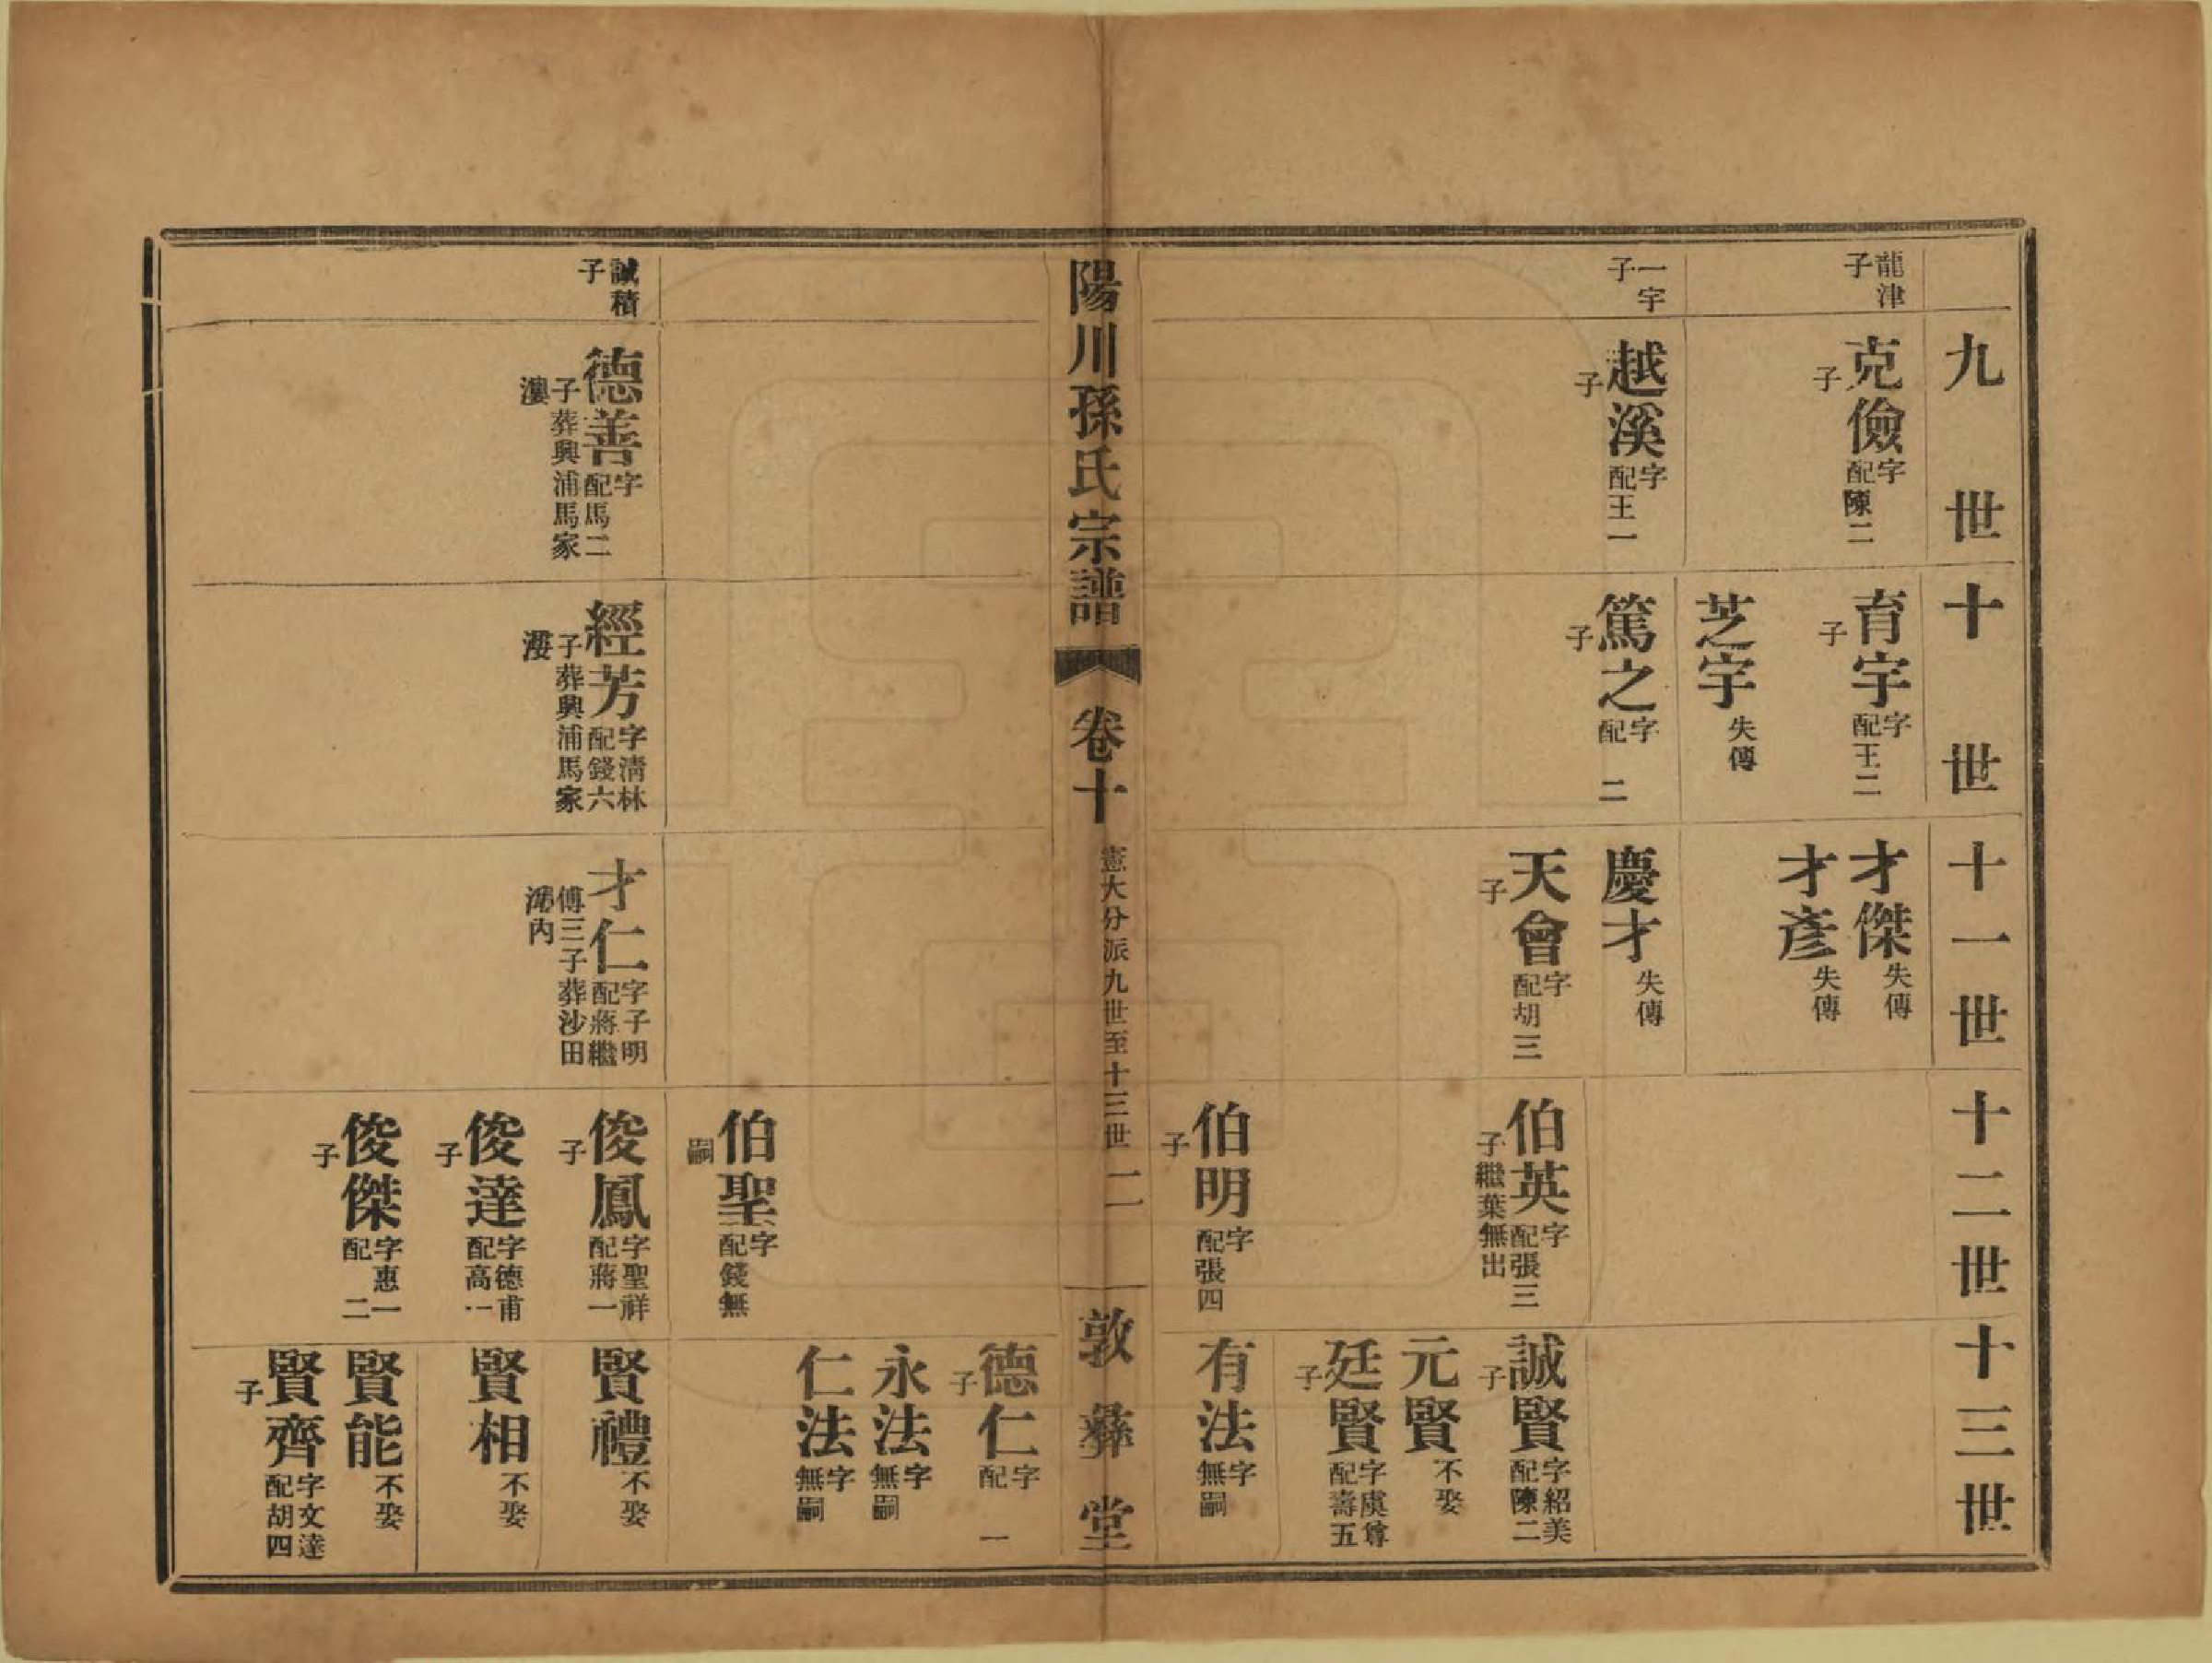 九世
龍津子
克儉 字 配陳二子
一宇子
越溪 字 配王一子
十世
育宇 字 配王二子
芝宇 失傳
篤之 字 配 二子
十一世
才傑 失傳
才彥 失傳
慶才 失傳
天會 字 配胡三子
十二世
伯英 字 配張三子繼葉無出
伯明 字 配張四子
十三世
誠賢 字紹美 配陳二子
元賢 不娶
廷賢 字虞尊 配壽五子
有法 字 無嗣
陽川孫氏宗譜 卷十 憲大分派九世至十三世 二 敦彝堂
伯聖 字 配錢無嗣
德仁 字 配 一子
永法 字 無嗣
仁法 字 無嗣
誠積子
德善 字 配馬二子葬興浦馬家漊
經芳 字清林 配錢六子葬興浦馬家漊
才仁 字子明 配蔣繼傅三子葬沙田內
俊鳳 字聖祥 配蔣一子
俊達 字德甫 配高一子
俊傑 字惠一 配 二子
賢禮 不娶
賢相 不娶
賢能 不娶
賢齊 字文達 配胡四子